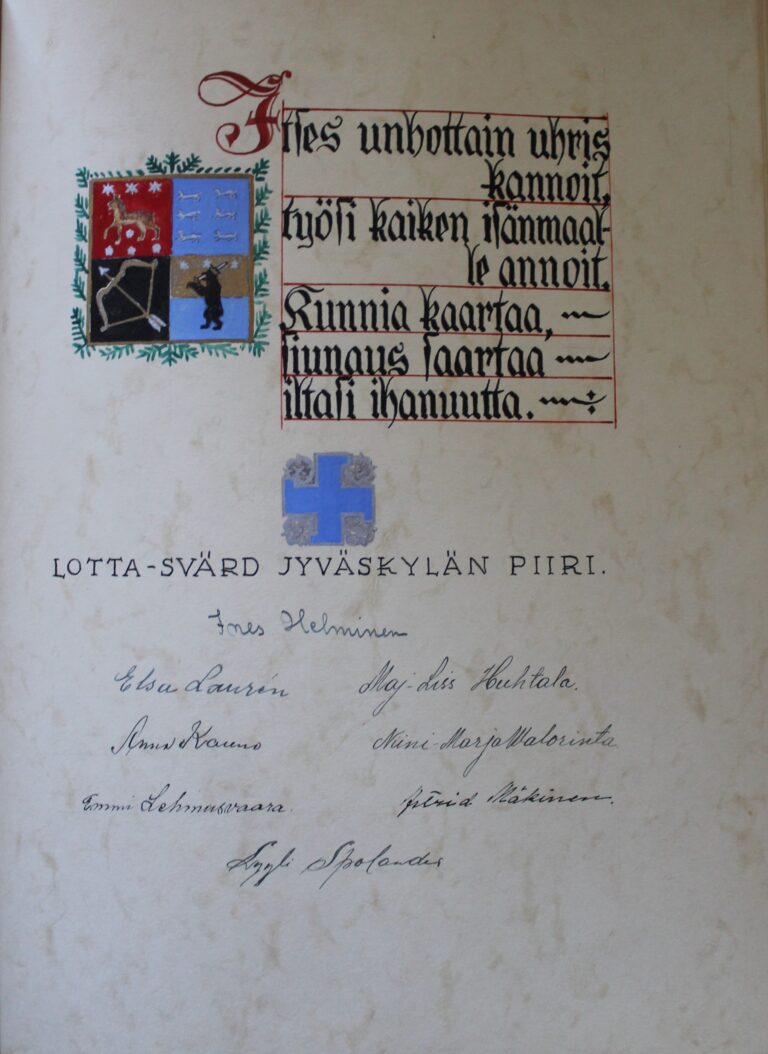 Itses unhottain uhris
kannoit,
työsi kaiken isänmaal-
le annoit.
Kunnia kaartaa,
siunaus saartaa
iltasi ihanuutta.
LOTTA-SVÄRD JYVÄSKYLÄN PIIRI.
Ines Helminen
Elsa Laurén Maj-Liss Huhtala.
Anna Kauno Niini-Marja Walorinta
Emmi Lehmusvaara. Astrid Mäkinen.
Lyyli Spolander